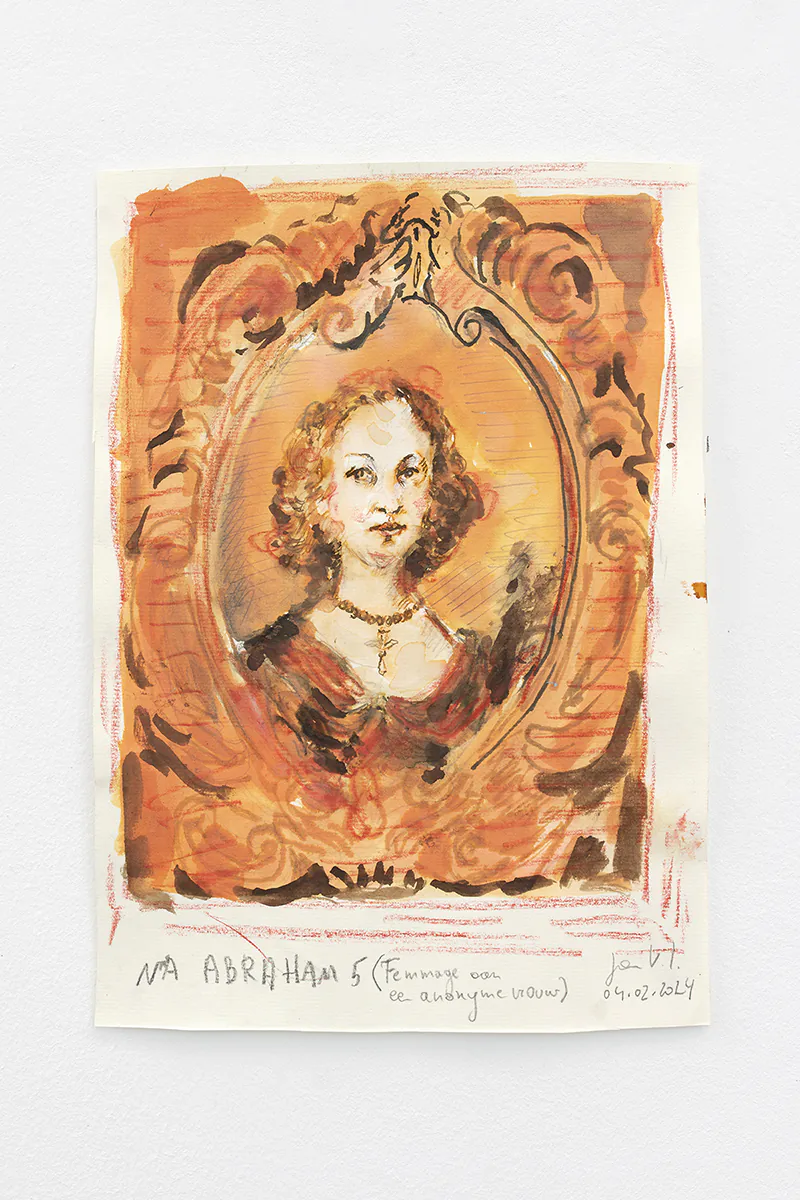 NA ABRAHAM 5 (Femmage aan
een anonyme vrouw)
Jan V.
04.02.2024